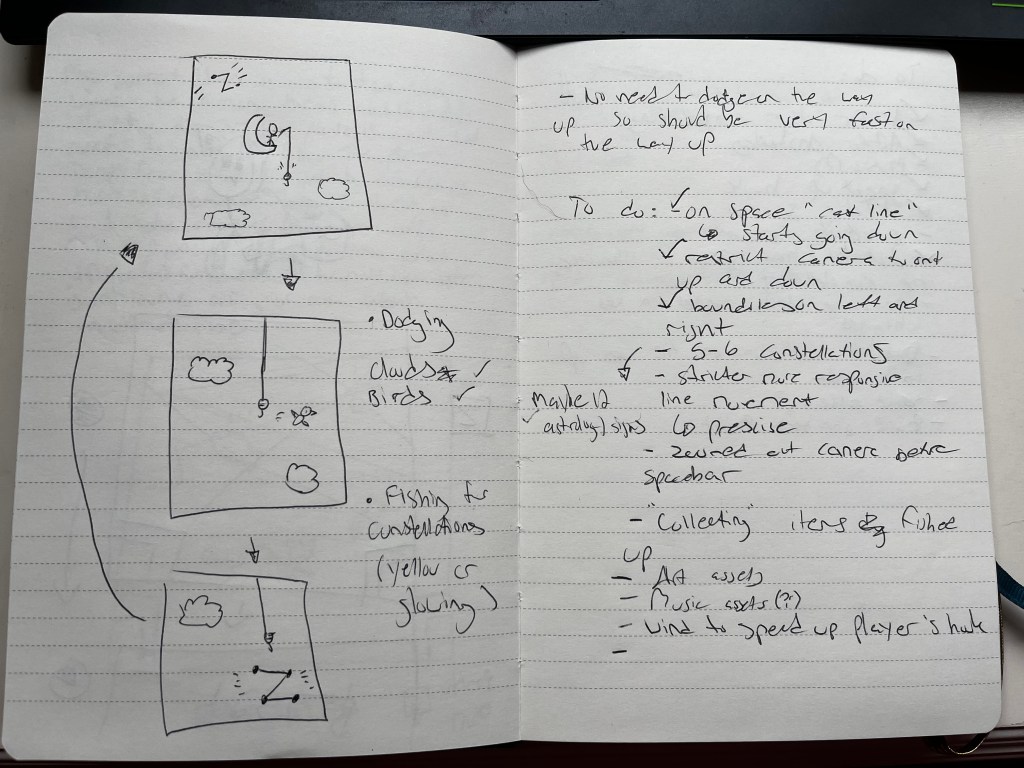 • Dodging
Clouds ✓
Birds ✓
• Fishing for
constellations
(yellow or
glowing)
- No need to dodge on the way
up so should be very fast on
the way up
To do: ✓ - on space "cast line"
↳ starts going down
✓ restrict camera to only
up and down
✓ boundaries on left and
right
- 5-6 constellations
- stricter more responsive
Maybe 12
line movement
✓ astrology signs
↳ prescise
- zoomed out camera before
spacebar
- "Collecting" items fished
up
- Art assets
- Music assets (?)
- wind to speed up player's hook
-